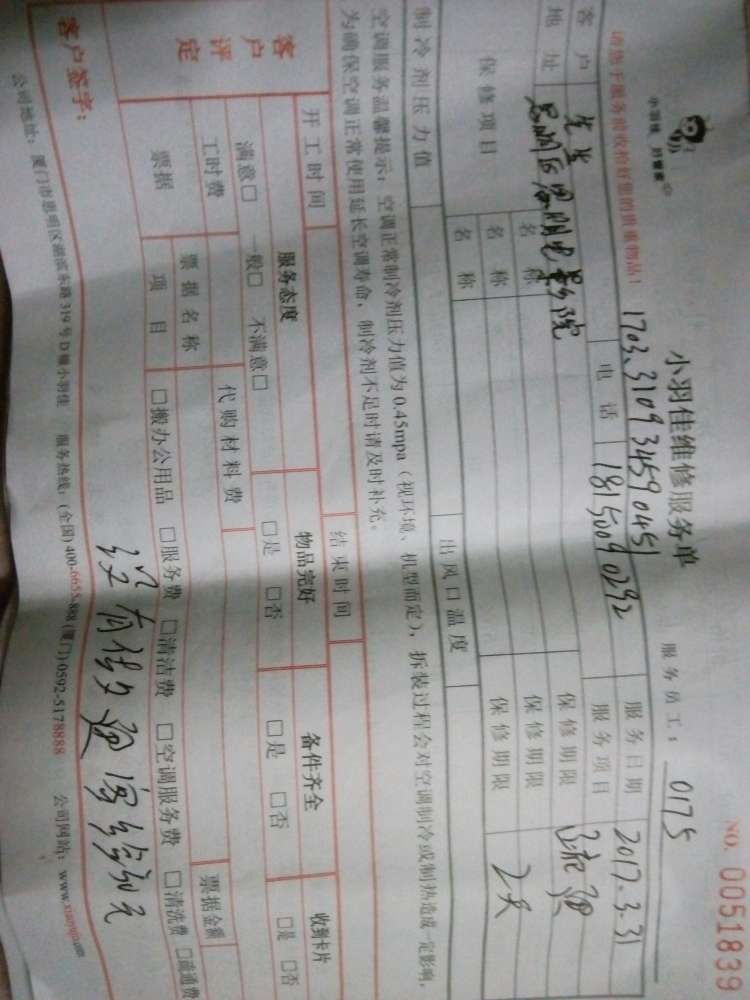 小羽佳 好管家
小羽佳维修服务单
NO. 0051839
服务员工： 0175
请您于服务前收拾好您的贵重物品！
1703310934590451
服务日期 2017.3.31
客户 先生
电话 18150090292
服务项目
地址 思明区思明电影院
保修项目
名称 保修期限
名称 保修期限
名称 保修期限 2天
制冷剂压力值 出风口温度
空调服务温馨提示：空调正常制冷剂压力值为0.45mpa（视环境、机型而定），拆装过程会对空调制冷或制热造成一定影响，
为确保空调正常使用延长空调寿命，制冷剂不足时请及时补充。
开工时间 结束时间
客户评定
服务态度 物品完好 备件齐全 收到卡片
满意□ 一般□ 不满意□ □是 □否 □是 □否 □是 □否
工时费 代购材料费
票据 票据名称 票据金额
项目 □搬办公用品 □服务费 □清洁费 □空调服务费 □清洗费 □疏通费
客户签字：
公司地址：厦门市思明区湖滨东路319号D幢小羽佳 服务热线：(全国)400-6655-888 (厦门)0592-5178888 公司网站：www.xiaoyujia.com